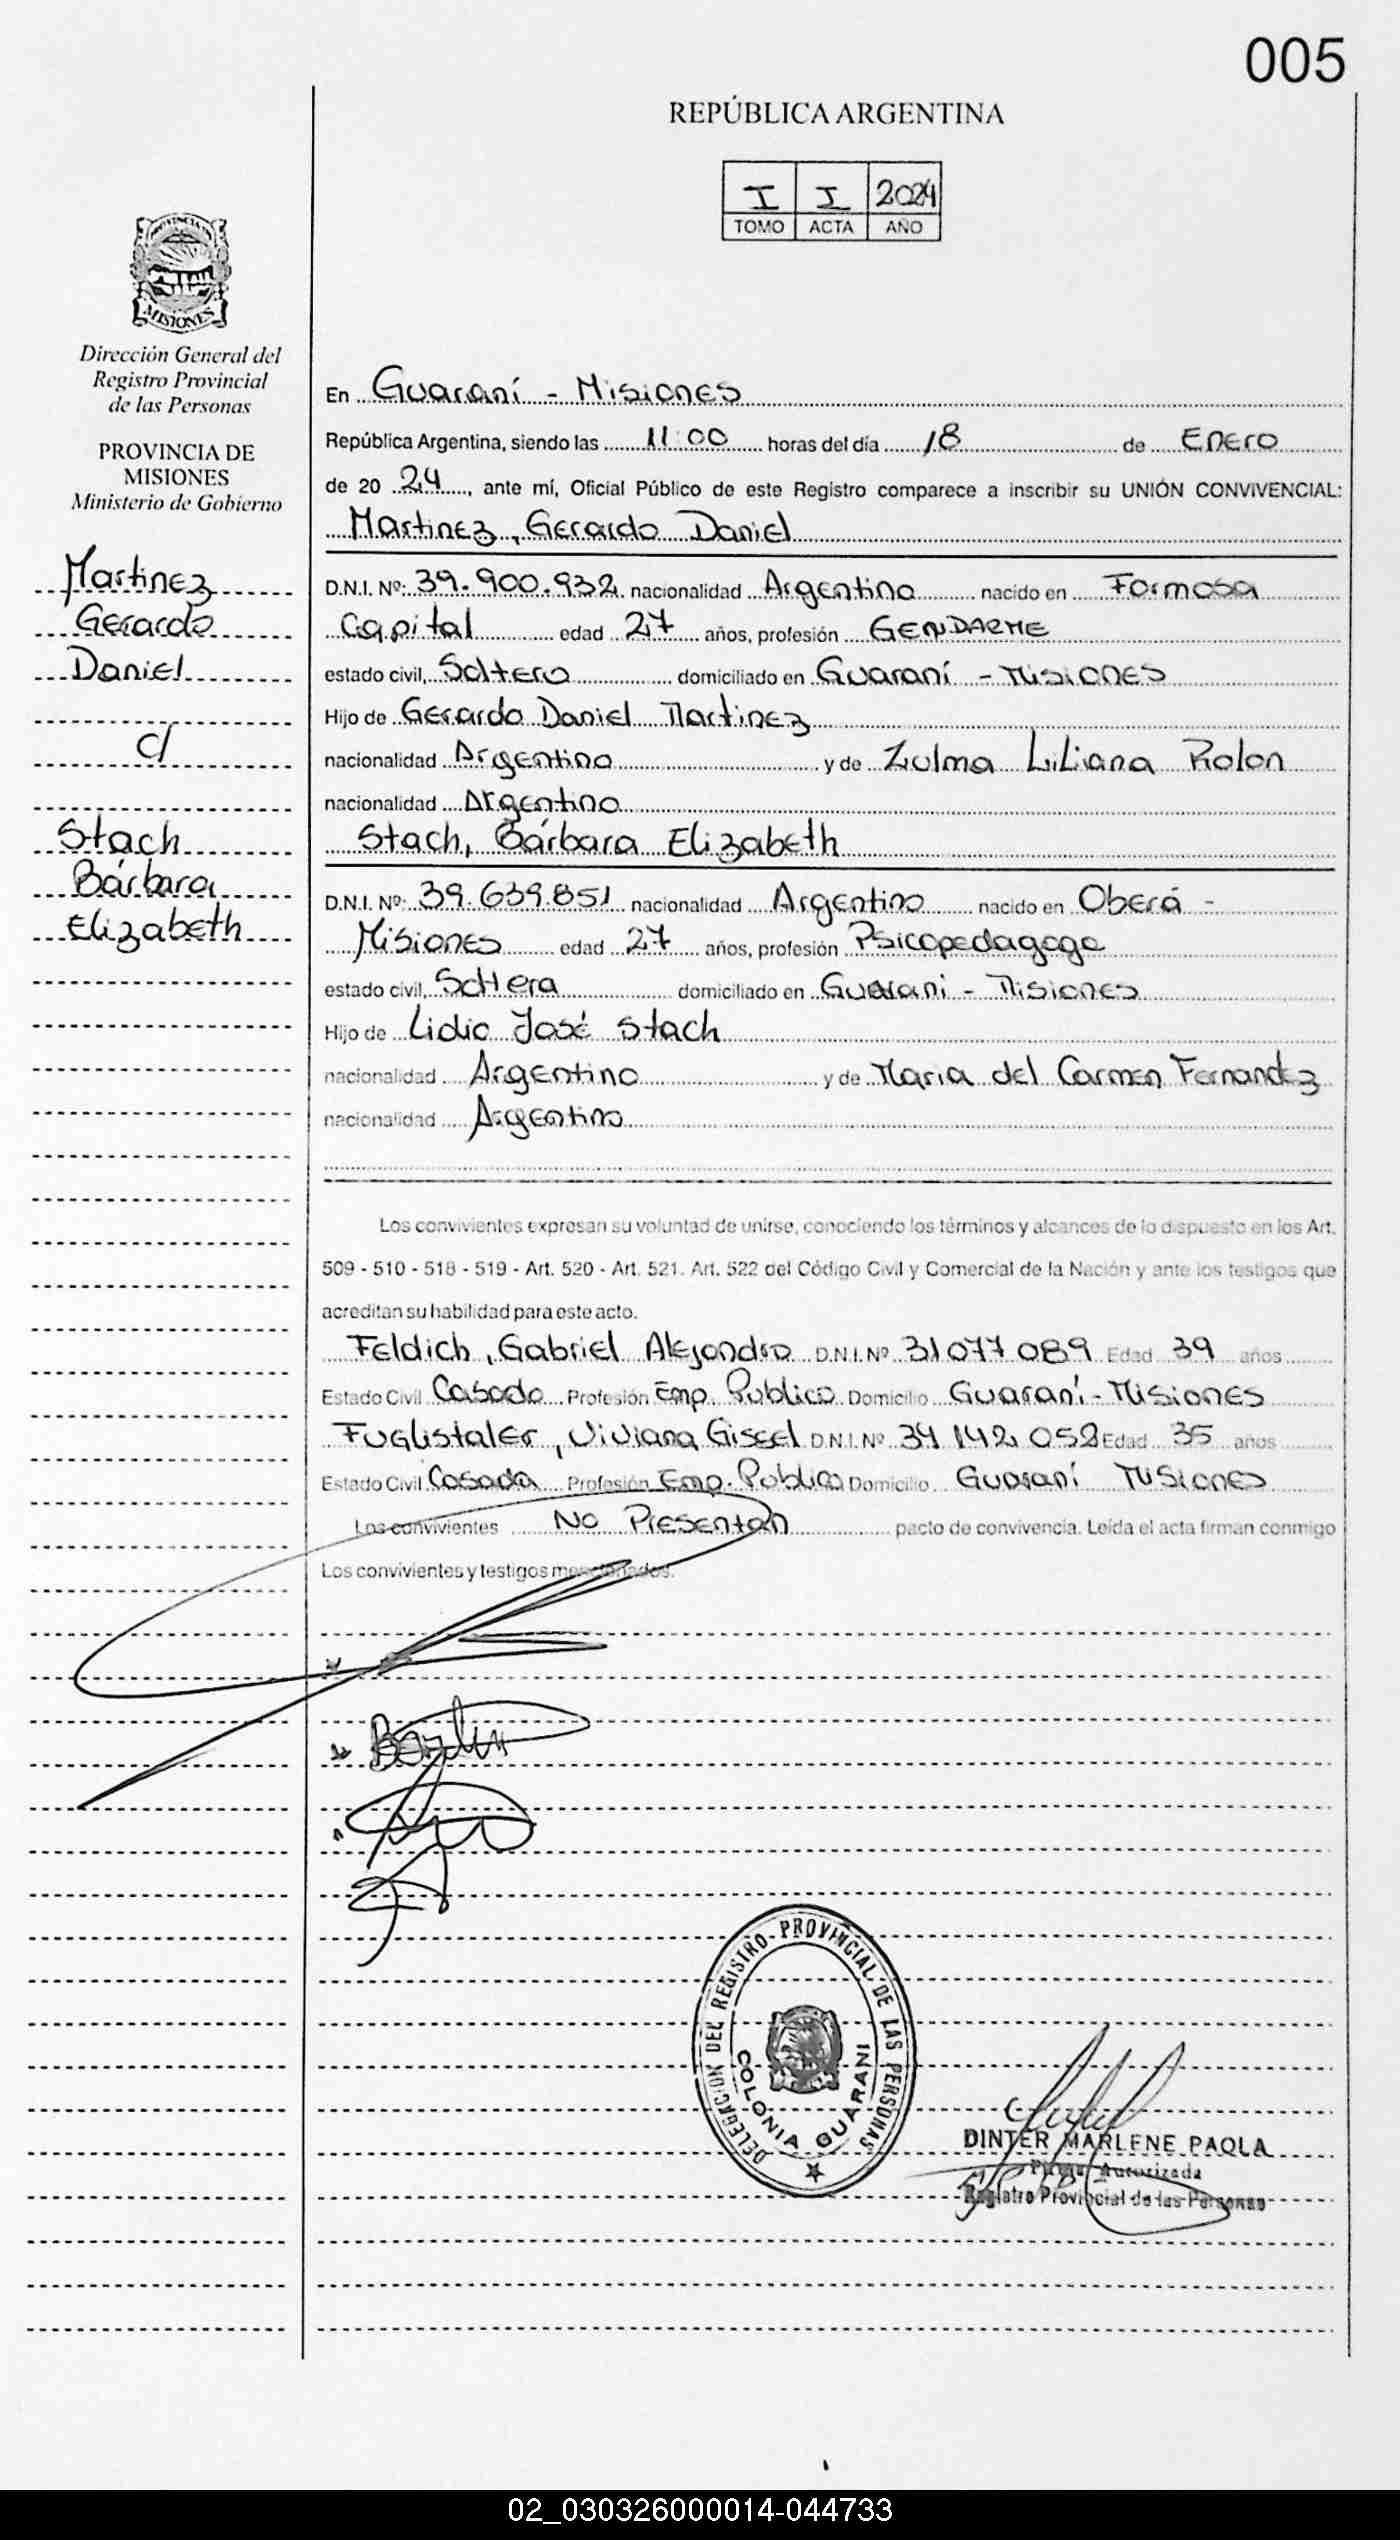 005
REPÚBLICA ARGENTINA
I I 2024
TOMO ACTA AÑO
PROVINCIA DE
MISIONES
Dirección General del
Registro Provincial
de las Personas
PROVINCIA DE
MISIONES
Ministerio de Gobierno
Martinez
Gerardo
Daniel
c/
Stach
Bárbara
Elizabeth
En Guaraní - Misiones
República Argentina, siendo las 11:00 horas del día 18 de Enero
de 20 24, ante mí, Oficial Público de este Registro comparece a inscribir su UNIÓN CONVIVENCIAL:
Martinez, Gerardo Daniel
D.N.I. Nº: 39.900.932 nacionalidad Argentino nacido en Formosa
Capital edad 27 años, profesión GENDARME
estado civil, Soltero domiciliado en Guaraní - Misiones
Hijo de Gerardo Daniel Martinez
nacionalidad Argentino y de Zulma Liliana Rolon
nacionalidad Argentino
Stach, Bárbara Elizabeth
D.N.I. Nº: 39.639.851 nacionalidad Argentino nacido en Oberá -
Misiones edad 27 años, profesión Psicopedagoga
estado civil, Soltera domiciliado en Guarani - Misiones
Hijo de Lidio José Stach
nacionalidad Argentino y de Maria del Carmen Fernandez
nacionalidad Argentino
Los convivientes expresan su voluntad de unirse, conociendo los términos y alcances de lo dispuesto en los Art.
509 - 510 - 518 - 519 - Art. 520 - Art. 521. Art. 522 del Código Civil y Comercial de la Nación y ante los testigos que
acreditan su habilidad para este acto.
Feldich, Gabriel Alejandro D.N.I. Nº 31077089 Edad 39 años
Estado Civil Casado Profesión Emp. Publico Domicilio Guaraní - Misiones
Fuglistaler, Viviana Gissel D.N.I. Nº 34 142 052 Edad 35 años
Estado Civil Casada Profesión Emp. Publico Domicilio Guaraní Misiones
Los convivientes No Presentan pacto de convivencia. Leída el acta firman conmigo
Los convivientes y testigos mencionados.
DELEGACION DEL REGISTRO PROVINCIAL DE LAS PERSONAS
COLONIA GUARANI
DINTER MARLENE PAOLA
Firma Autorizada
Registro Provincial de las Personas
02_030326000014-044733